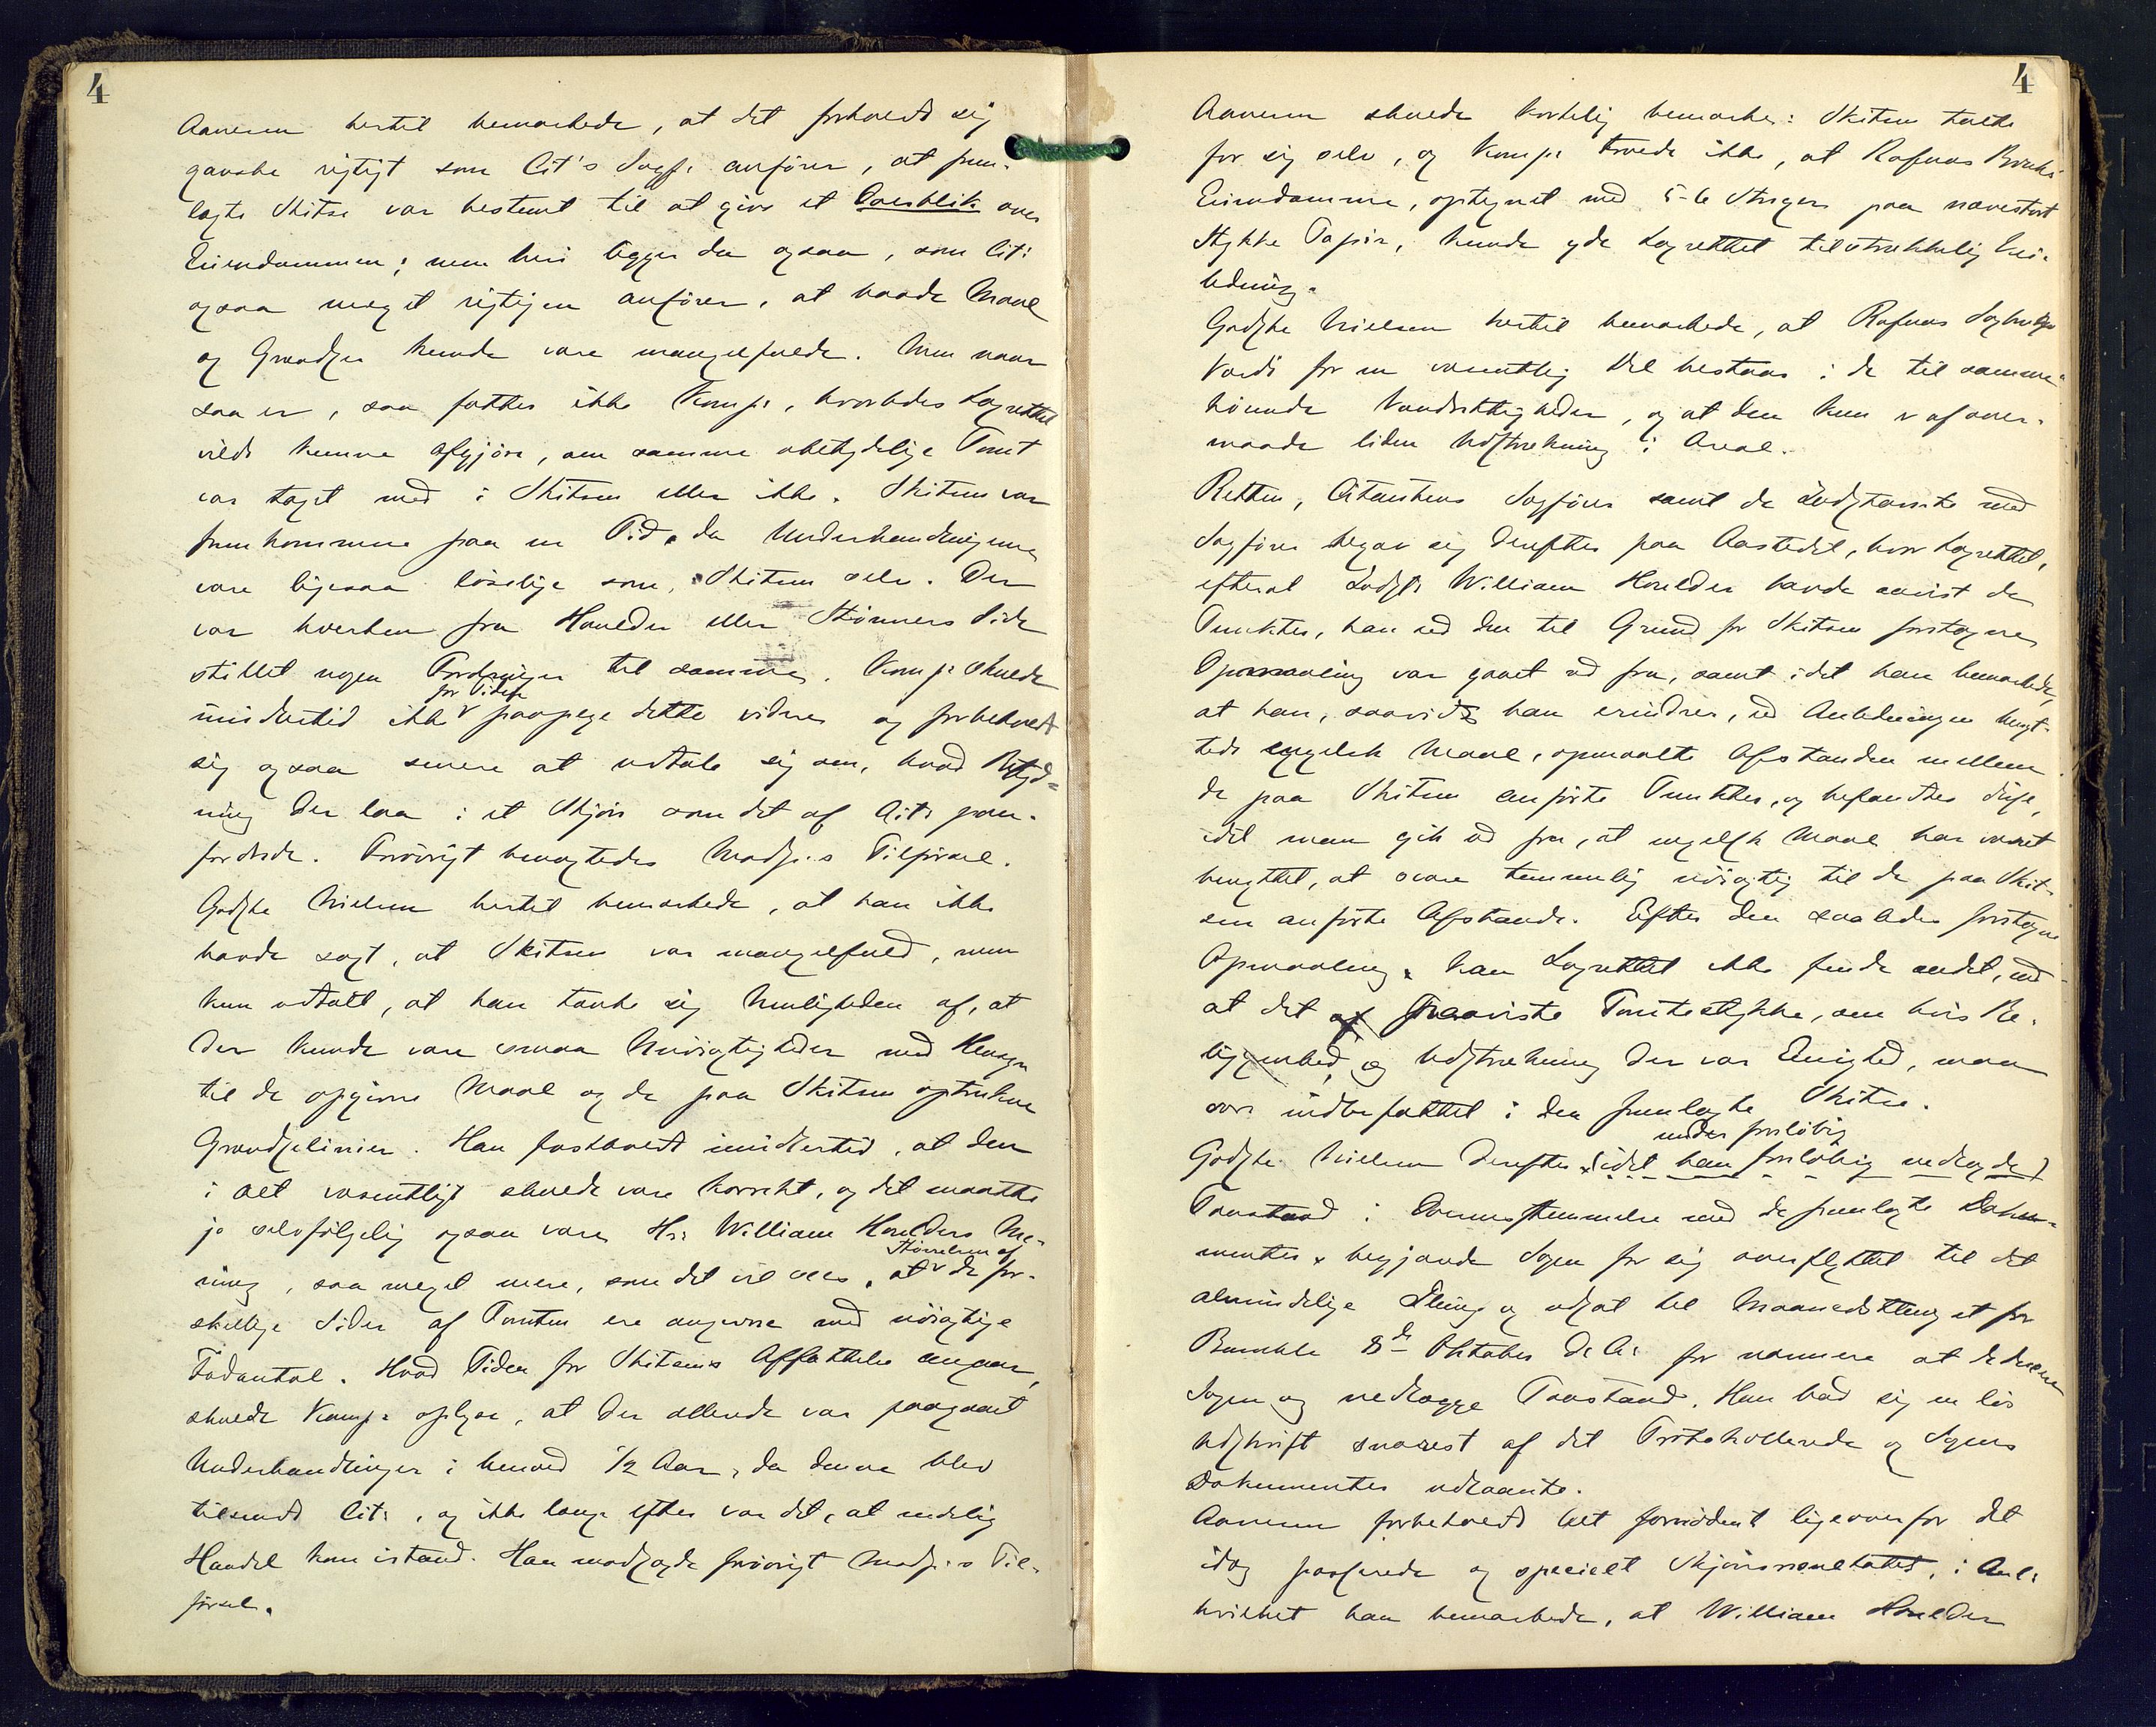 4
Aanesen hertil bemærkede, at det forholdt sig
ganske rigtigt som Cit's Sagf. anfører, at frem-
lagte Skitse var bestemt til at give et Overblik over
Eiendommen; men heri ligger da ogsaa, som Cit:
ogsaa meget rigtigen anfører, at baade Maal
og Grændser kunde være mangelfulde. Men naar
saa er, saa fatter ikke Komp:, hvorledes Lagrettet
vilde kunne afgjøre, om samme ubetydelige Tomt
var taget med i Skitsen eller ikke. Skitsen var
fremkommen paa en Tid, da Underhandlingerne
vare ligesaa løselige som Skitsen selv. Der
var hverken fra Houlder eller Skinners Side
stillet nogen Fordringer til samme. Komp: skulde
for Tiden
imidlertid ikke paapege dette videre og forbeholdt
sig ogsaa senere at udtale sig om, hvad Betyd-
ning der laa i et Skjøn som det af Cit: paa-
fordrede. Forøvrigt benægtedes Modp:s Tilførsel.
Godske Nielsen hertil bemærkede, at han ikke
havde sagt, at Skitsen var mangelfuld, men
kun udtalt, at han tænkte sig Muligheden af, at
der kunde være smaa Unøiagtigheder med Hensyn
til de opgivne Maal og de paa Skitsen optrukne
Grændselinier. Han fastholdt imidlertid, at den
i alt væsentligt skulde være korrekt, og det maatte
jo selvfølgelig ogsaa være Hr: William Houlders Me-
Størrelsen af
ning, saa meget mere, som det vil sees, at de for-
skellige Sider af Tomten ere angivne med nøiagtige
Fodantal. Hvad Tiden for Skitsens Affattelse angaar,
skulde Komp: oplyse, at der allerede var paagaaet
Underhandlinger i henved 1/2 Aar, da denne blev
tilsendt Cit:, og ikke længe efter var det, at endelig
Handel kom istand. Han modsagde forøvrigt Modp:s Til-
førsel.
4
Aanesen skulde kortelig bemærke: Skitsen talte
for sig selv, og Komp: troede ikke, at Rafnæs Brugs
Eiendomme, optegnet med 5-6 Streger paa nævestort
Stykke Papir, kunde yde Lagrettet tilstrækkelig Vei-
ledning.
Godske Nielsen hertil bemærkede, at Rafnæs Sagbrugs
Værdi for en væsentlig Del bestaar i de til samme
hørende Vandrettigheder, og at den kun er af over-
maade liden Udstrækning i Areal.
Retten, Citantens Sagfører samt de Indstævnte med
Sagfører begav sig derefter paa Aastedet, hvor Lagrettet,
efterat Indst: William Houlder havde anvist de
Punkter, han ved den til Grund for Skitsen foretagne
Opmaaling var gaaet ud fra, samt idet han bemærkede,
at han, saavidt han erindrer, ved Anledningen benyt-
tede engelsk Maal, opmaalte Afstanden mellem
de paa Skitsen anførte Punkter, og befandtes disse,
idet man gik ud fra, at engelsk Maal har været
benyttet, at svare temmelig nøiagtig til de paa Skit-
sen anførte Afstande. Efter den saaledes foretagne
Opmaaling kan Lagrettet ikke finde andet, end
at det af paaviste Tomtestykke, om hvis Be-
liggenhed og Udstrækning der var Enighed, maa
være indbefattet i den fremlagte Skitse.
under foreløbig
Godske Nielsen derefter (idet han foreløbig nedlagde)
Paastand i Overensstemmelse med de fremlagte Doku-
menter begjærede Sagen for sig overflyttet til det
almindelige Thing og udsat til Maanedsthinget for
Bamble 8de Oktober d. A: for nærmere at deducere
Sagen og nedlægge Paastand. Han bad sig en løs
Udskrift snarest af det Protokollerede og Sagens
Dokumenter udlaante.
Aanesen forbeholdt alt fornødent ligeoverfor det
idag passerede og specielt Skjønsresultatet, i Anl:
hvilket han bemærkede, at William Houlder